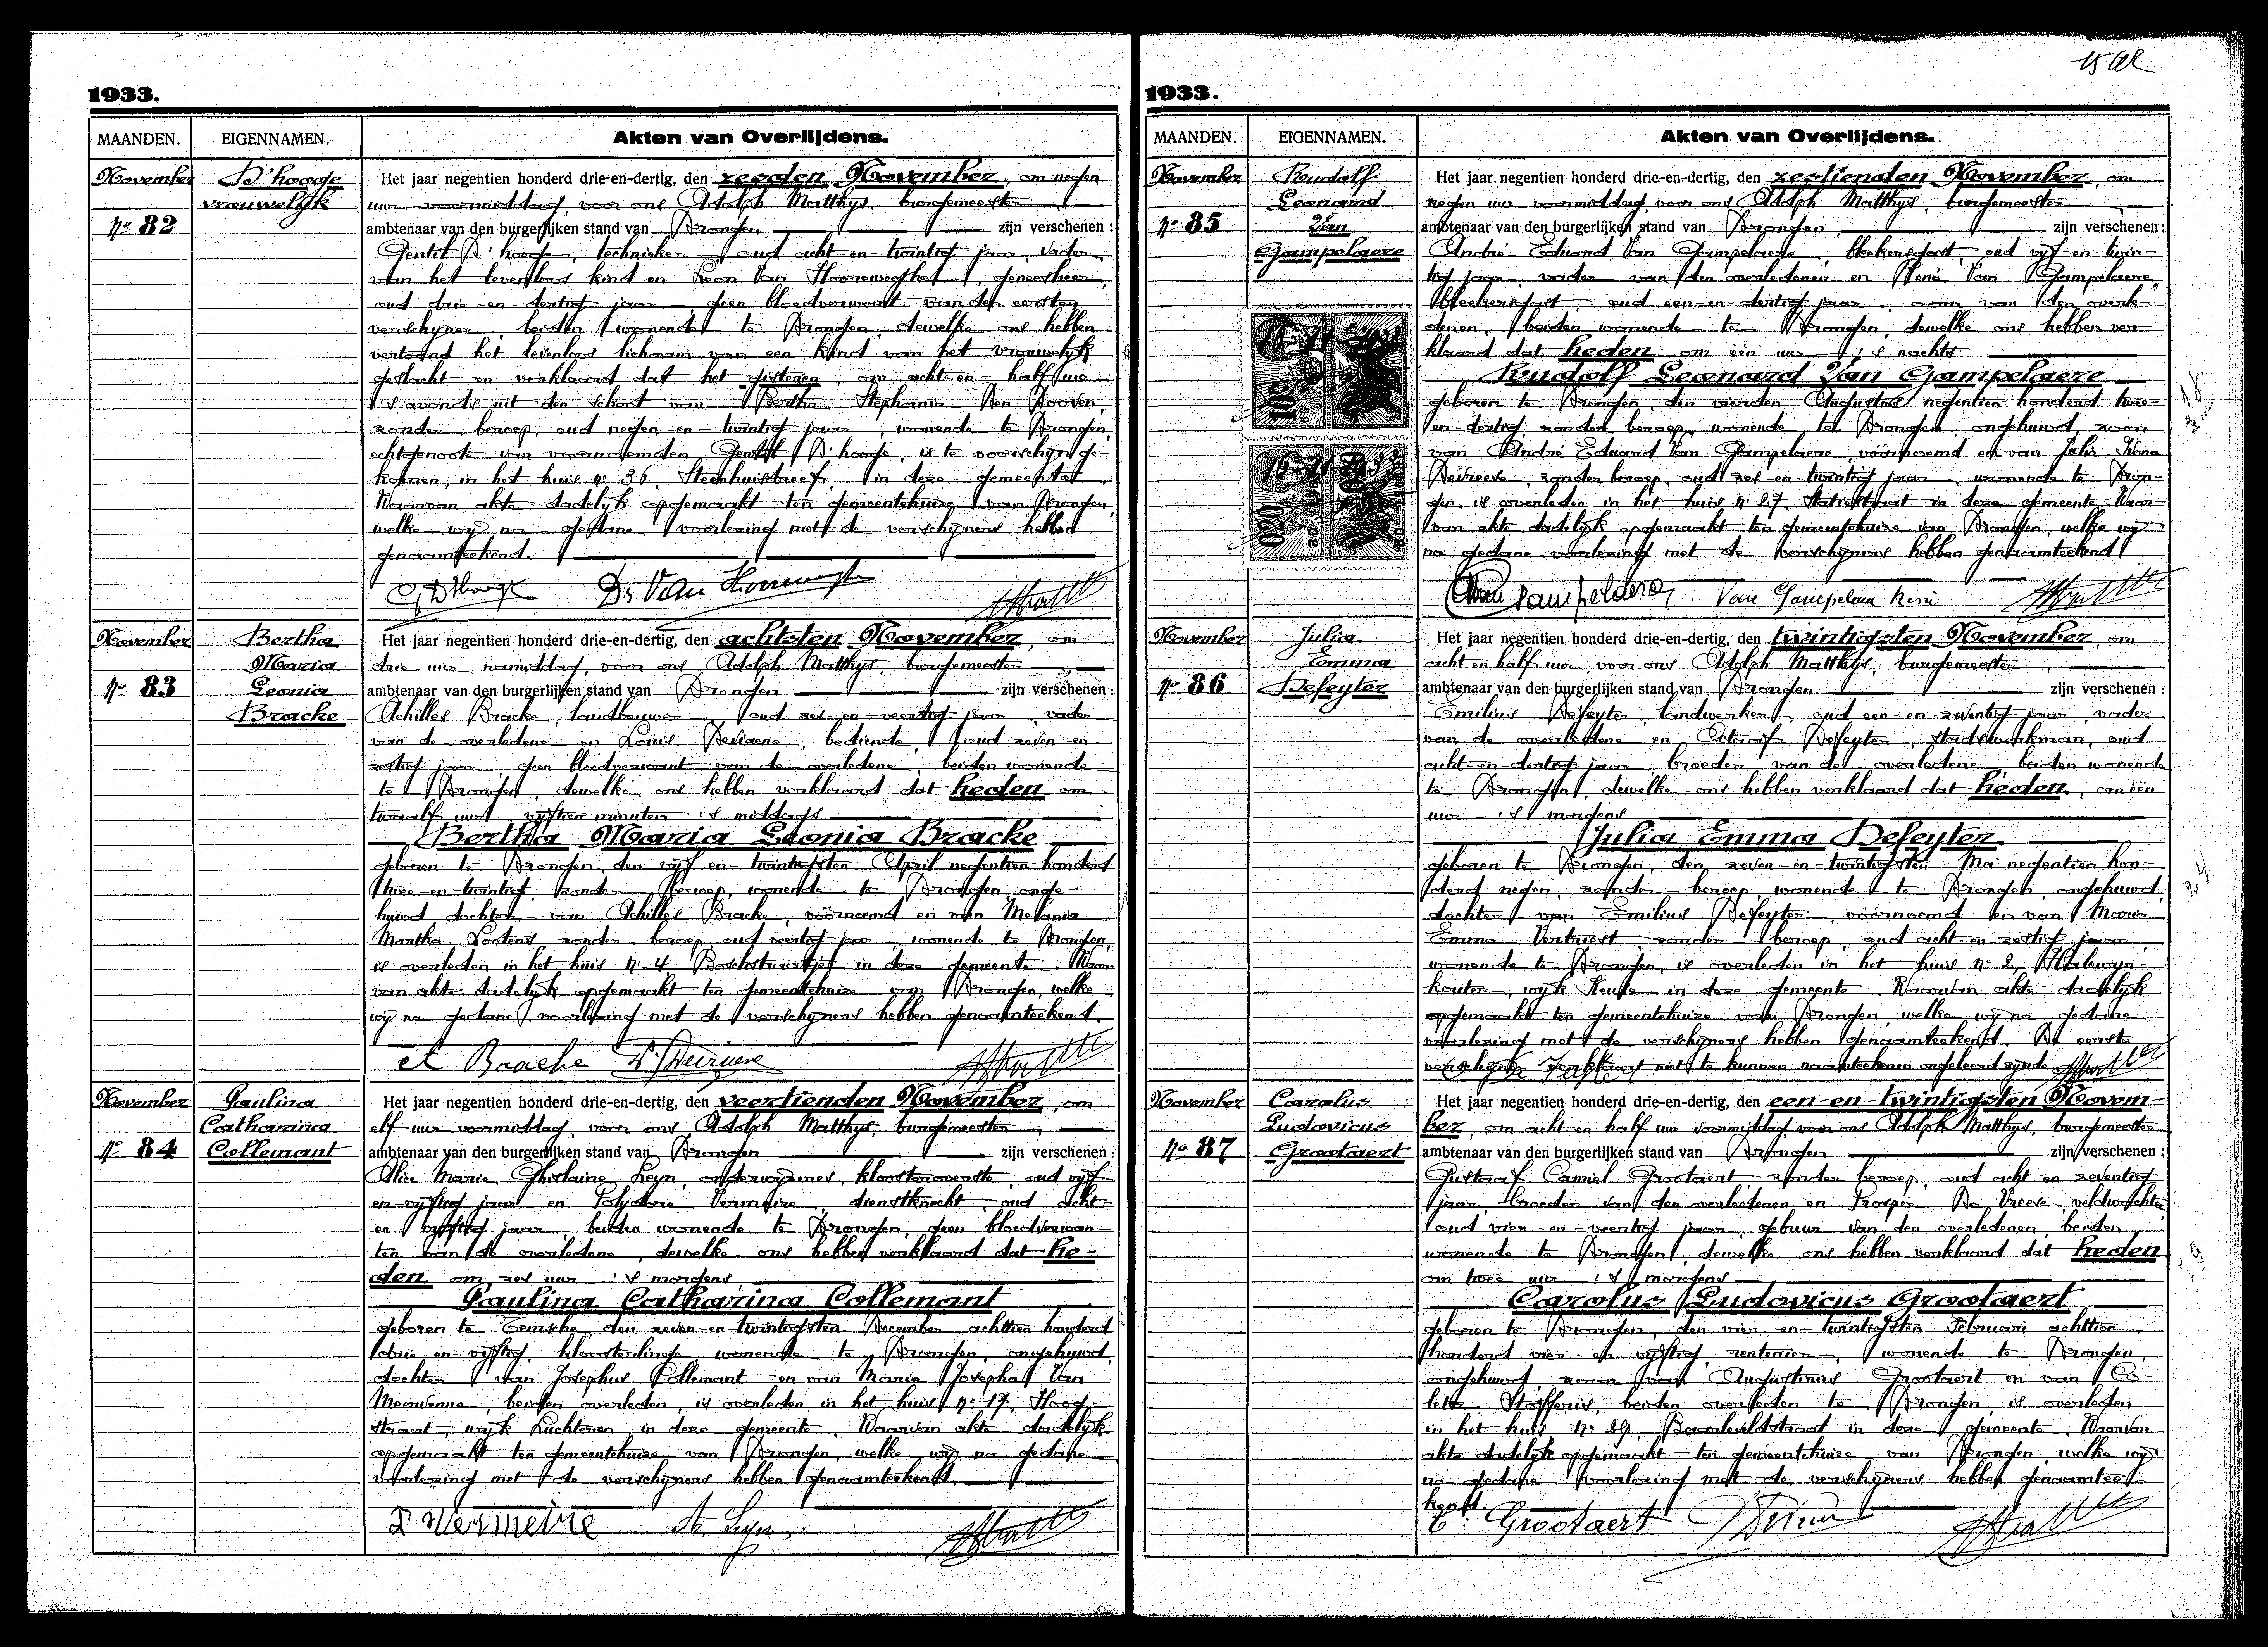 15 Ol
1933.
MAANDEN.
EIGENNAMEN.
Akten van Overlijdens.
November
No 82
D'hooge
vrouwelijk
Het jaar negentien honderd drie-en-dertig, den zesden November, om negen
uur voormiddag, voor ons Adolph Matthys, burgemeester
ambtenaar van den burgerlijken stand van Drongen zijn verschenen :
Gentil D'hooge, technieker oud acht-en-twintig jaar, vader
van het levenloos kind en Leon Van Hooreweghe, geneesheer,
oud drie-en-dertig jaar, geen bloedverwant van den eersten
verschijner, beiden wonende te Drongen, dewelke ons hebben
vertoond het levenloos lichaam van een kind van het vrouwelijk
geslacht en verklaard dat het gisteren, om acht-en-half ure
's avonds uit den schoot van Bertha Stephania Den Dooven,
zonder beroep, oud negen-en-twintig jaar, wonende te Drongen,
echtgenoote van voornoemden Gentil D'hooge, is te voorschijn ge-
komen, in het huis nr 36, Steenhuisdreef, in deze gemeente.
Waarvan akte dadelijk opgemaakt ten gemeentehuize van Drongen,
welke wij na gedane voorlezing met de verschijners hebben
genaamteekend.
G D'hooge Dr Van Hooreweghe
November
No 83
Bertha
Maria
Leonia
Bracke
Het jaar negentien honderd drie-en-dertig, den achtsten November, om
drie uur namiddag, voor ons Adolph Matthys, burgemeester
ambtenaar van den burgerlijken stand van Drongen zijn verschenen :
Achilles Bracke, landbouwer, oud zes-en-veertig jaar, vader
van de overledene en Louis Deviaene, bediende, oud zeven-en
zestig jaar, geen bloedverwant van de overledene, beiden wonende
te Drongen, dewelke ons hebben verklaard dat heden om
twaalf uur vijftien minuten 's middags
Bertha Maria Leonia Bracke
geboren te Drongen, den vijf-en-twintigsten April negentien honderd
twee-en-twintig, zonder beroep, wonende te Drongen, onge-
huwd, dochter van Achilles Bracke, voornoemd en van Melania
Martha Lootens zonder beroep oud veertig jaar, wonende te Drongen,
is overleden in het huis nr 4 in deze gemeente. Waar-
van akte dadelijk opgemaakt ten gemeentehuize van Drongen, welke
wij na gedane voorlezing met de verschijners hebben genaamteekend.
Bracke L. Deviaene
November
No 84
Paulina
Catharina
Collemant
Het jaar negentien honderd drie-en-dertig, den veertienden November, om
elf uur voormiddag, voor ons Adolph Matthys, burgemeester
ambtenaar van den burgerlijken stand van Drongen zijn verschenen :
Alice Marie Ghislaine Seyn, onderwijzeres, kloosteroverste, oud vijf-
en-vijftig jaar en Polydore Vermeire, dienstknecht oud acht-
en vijftig jaar, beiden wonende te Drongen, geen bloedverwan-
ten van de overledene, dewelke ons hebben verklaard dat he-
den om zes uur 's morgens
Paulina Catharina Collemant
geboren te Temsche, den zeven-en-twintigsten December achttien honderd
drie-en-vijftig, kloosterlinge, wonende te Drongen, ongehuwd,
dochter van Josephus Collemant en van Maria Josepha Van
Meervenne, beiden overleden, is overleden in het huis nr 17, Hoog-
straat, wijk Luchteren, in deze gemeente. Waarvan akte dadelijk
opgemaakt ten gemeentehuize van Drongen, welke wij na gedane
voorlezing met de verschijners hebben genaamteekend.
P Vermeire A. Seyn
1933.
MAANDEN.
EIGENNAMEN.
Akten van Overlijdens.
November
No 85
Rudolf
Leonard
Van
Gampelaere
Het jaar negentien honderd drie-en-dertig, den zestienden November, om
negen uur voormiddag, voor ons Adolph Matthys, burgemeester
ambtenaar van den burgerlijken stand van Drongen zijn verschenen :
André Eduard Van Gampelaere, bleekersgast, oud vijf-en-twin-
tig jaar, vader van den overledenen en René Van Gampelaere,
bleekersgast, oud een-en-dertig jaar oom van den overle-
denen, beiden wonende te Drongen, dewelke ons hebben ver-
klaard dat heden om één uur 's nachts
Rudolf Leonard Van Gampelaere
geboren te Drongen, den vierden Augustus negentien honderd twee-
en-dertig, zonder beroep, wonende te Drongen, ongehuwd, zoon
van André Eduard Van Gampelaere, voornoemd en van Julia
Devreese, zonder beroep, oud zes-en-twintig jaar, wonende te Dron-
gen, is overleden in het huis nr 27, Statiestraat in deze gemeente. Waar-
van akte dadelijk opgemaakt ten gemeentehuize van Drongen, welke wij
na gedane voorlezing met de verschijners hebben genaamteekend
Van Gampelaere Van Gampelaere René
November
No 86
Julia
Emma
Defeyter
Het jaar negentien honderd drie-en-dertig, den twintigsten November, om
acht en half uur, voor ons Adolph Matthys, burgemeester
ambtenaar van den burgerlijken stand van Drongen zijn verschenen :
Emilius Defeyter, landwerker, oud een-en-zeventig jaar, vader
van de overledene en Octaaf Defeyter, stadswerkman, oud
acht-en-dertig jaar, broeder van de overledene, beiden wonende
te Drongen, dewelke ons hebben verklaard dat heden, om één
uur 's morgens
Julia Emma Defeyter
geboren te Drongen, den zeven-en-twintigsten Mei negentien hon-
derd negen, zonder beroep, wonende te Drongen, ongehuwd,
dochter van Emilius Defeyter, voornoemd en van Maria
Emma Vertriest zonder beroep, oud acht-en-zestig jaar,
wonende te Drongen, is overleden in het huis nr 2, Halewyn-
kouter, wijk Keuze in deze gemeente. Waarvan akte dadelijk
opgemaakt ten gemeentehuize van Drongen, welke wij na gedane
voorlezing met de verschijners hebben genaamteekend. De eerste
verschijner verklaart niet te kunnen naamteekenen ongeleerd zijnde
November
No 87
Carolus
Ludovicus
Grootaert
Het jaar negentien honderd drie-en-dertig, den een-en-twintigsten Novem-
ber, om acht en-half uur voormiddag, voor ons Adolph Matthys, burgemeester
ambtenaar van den burgerlijken stand van Drongen zijn verschenen :
Gustaaf Camiel Grootaert, zonder beroep, oud acht en zeventig
jaar, broeder van den overledenen, en Prosper De Vreese, veldwachter,
oud vier-en-veertig jaar, gebuur van den overledenen, beiden
wonende te Drongen, dewelke ons hebben verklaard dat heden
om twee uur 's morgens
Carolus Ludovicus Grootaert
geboren te Drongen, den vier-en-twintigsten Februari achttien
honderd vier-en-vijftig, rentenier, wonende te Drongen,
ongehuwd, zoon van Augustinus Grootaert en van Co-
leta Stofferis, beiden overleden te Drongen, is overleden
in het huis nr 29, Baarleveldestraat in deze gemeente. Waarvan
akte dadelijk opgemaakt ten gemeentehuize van Drongen, welke wij
na gedane voorlezing met de verschijners hebben genaamtee-
kend.
Grootaert